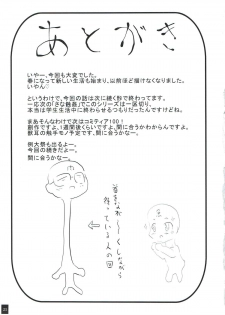 あとがき
いやー、今回も大変でした。
春になって新しい生活も始まり、以前ほど描けなくなりました。
いやん♡
というわけで、今回の話は次に続く形で終わってます。
一応次の「きな触姦」でこのシリーズは一区切り。
本当は学生生活中に終わらせるつもりだったんですけどね。
まあそんなわけで次はコミティア100！
創作ですよ。1週間後くらいですよ、間に合うかわからんです。
獣耳の触手モノ予定ですよ。
例大祭も出るよー。
今回の続きだよー。
間に合うかなー。
しながら
待っている人の図